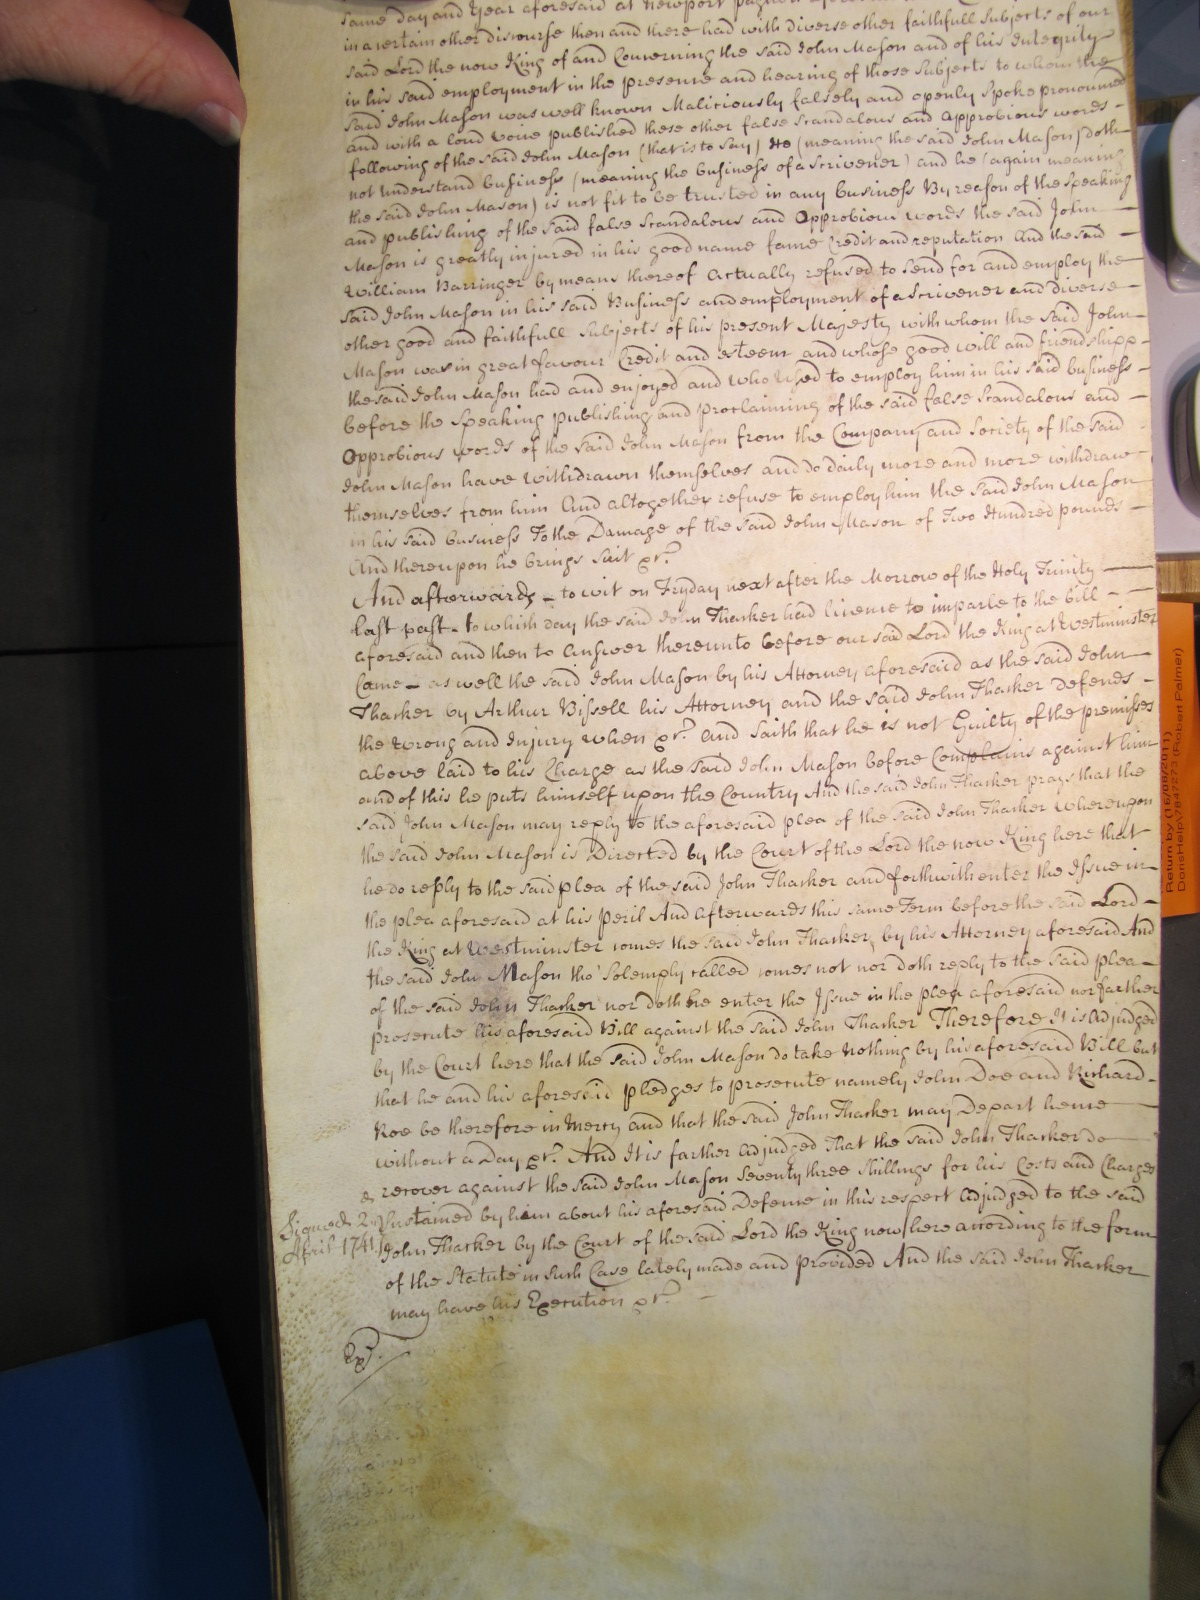 same day and Year aforesaid at Newport
in a certain other discourse then and there had with diverse other faithfull Subjects of our
said Lord the now King of and Concerning the said John Mason and of his Integrity
in his said employment in the presence and hearing of those Subjects to whom the
said John Mason was well known Maliciously falsely and openly Spoke pronounced
and with a loud voice published these other false Scandalous and Opprobious words
following of the said John Mason (that is to say) He (meaning the said John Mason) doth
not understand business (meaning the business of a Scrivener) and he (again meaning
the said John Mason) is not fit to be trusted in any business By reason of the Speaking
and publishing of the said false Scandalous and Opprobious words the said John
Mason is greatly injured in his good name fame Credit and reputation And the said
William Barringer by means thereof Actually refused to send for and employ the
said John Mason in his said Business and employment of a Scrivener and diverse
other good and faithfull Subjects of his present Majesty with whom the said John
Mason was in great favour Credit and esteem and whose good will and friendshipp
the said John Mason had and enjoyed and who Used to employ him in his said business
before the Speaking publishing and proclaiming of the said false Scandalous and
Opprobious words of the said John Mason from the Company and Society of the said
John Mason have withdrawn themselves and do daily more and more withdraw
themselves from him And altogether refuse to employ him the said John Mason
in his said business To the Damage of the said John Mason of Two Hundred pounds
And thereupon he brings suit &c.
And afterwards - to wit on Fryday next after the Morrow of the Holy Trinity
last past - to which day the said John Thacker had licence to imparle to the bill
aforesaid and then to Answer thereunto before our said Lord the King at Westminster
Came - as well the said John Mason by his Attorney aforesaid as the said John
Thacker by Arthur Bissell his Attorney and the said John Thacker Defends
the Wrong and Injury when &c. and saith that he is not Guilty of the premisses
above laid to his Charge as the said John Mason before Complains against him
and of this he puts himself upon the Country And the said John Thacker prays that the
said John Mason may reply to the aforesaid plea of the said John Thacker Whereupon
the said John Mason is Directed by the Court of the Lord the now King here that
he do reply to the said plea of the said John Thacker and forthwith enter the Issue in
the plea aforesaid at his peril And afterwards this same Term before the said Lord
the King at Westminster comes the said John Thacker by his Attorney aforesaid And
the said John Mason tho' Solemply called comes not nor doth reply to the said plea
of the said John Thacker nor doth he enter the Issue in the plea aforesaid nor farther
prosecute his aforesaid Bill against the said John Thacker Therefore It is Adjudged
by the Court here that the said John Mason do take nothing by his aforesaid Bill but
that he and his aforesaid pledges to prosecute namely John Doe and Richard
Roe be therefore in Mercy and that the said John Thacker may Depart hence
without a Day &c. And It is farther Adjudged That the said John Thacker do
recover against the said John Mason Seventy three Shillings for his Costs and Charges
Signed 2d
sustained by him about his aforesaid Defence in this respect Adjudged to the said
April 1741
John Thacker by the Court of the said Lord the King now here according to the form
of the Statute in such Case lately made and provided And the said John Thacker
may have his Execution &c.